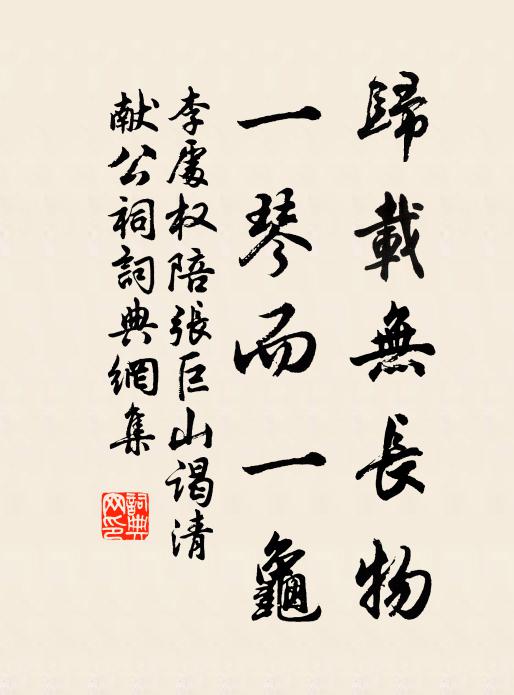 歸載無長物
一琴而一龜
李處权陪張巨山谒清
献公祠詞典網集
詞典
网印